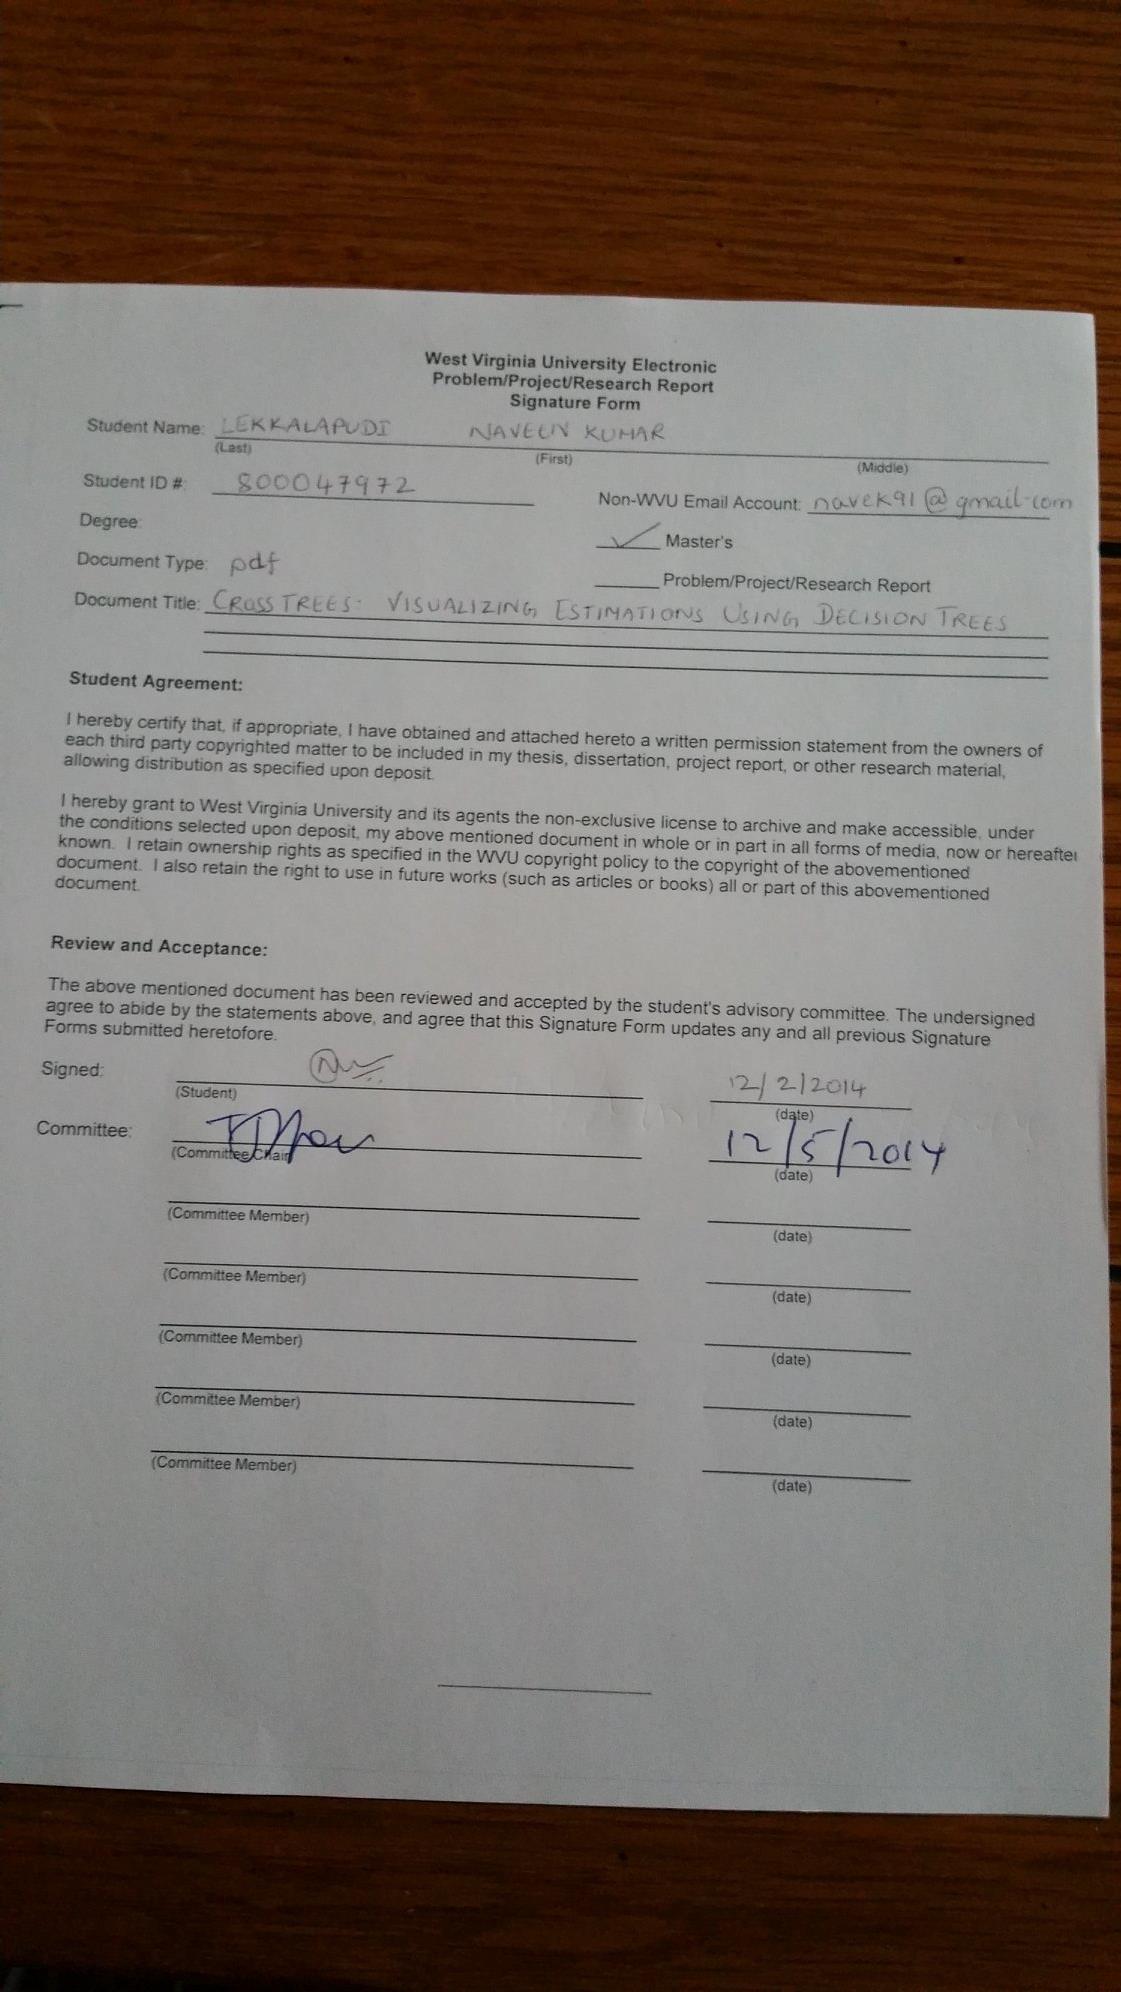 West Virginia University Electronic
Problem/Project/Research Report
Signature Form
Student Name: LEKKALAPUDI NAVEEN KUMAR
(Last) (First) (Middle)
Student ID #: 800047972
Non-WVU Email Account: navek91@gmail.com
Degree:
Master's
Document Type: pdf
Problem/Project/Research Report
Document Title: CROSSTREES: VISUALIZING ESTIMATIONS USING DECISION TREES
Student Agreement:
I hereby certify that, if appropriate, I have obtained and attached hereto a written permission statement from the owners of
each third party copyrighted matter to be included in my thesis, dissertation, project report, or other research material,
allowing distribution as specified upon deposit.
I hereby grant to West Virginia University and its agents the non-exclusive license to archive and make accessible, under
the conditions selected upon deposit, my above mentioned document in whole or in part in all forms of media, now or hereafter
known. I retain ownership rights as specified in the WVU copyright policy to the copyright of the abovementioned
document. I also retain the right to use in future works (such as articles or books) all or part of this abovementioned
document.
Review and Acceptance:
The above mentioned document has been reviewed and accepted by the student's advisory committee. The undersigned
agree to abide by the statements above, and agree that this Signature Form updates any and all previous Signature
Forms submitted heretofore.
Signed: 12/2/2014
(Student) (date)
Committee: 12/5/2014
(Committee Chair) (date)
(Committee Member) (date)
(Committee Member) (date)
(Committee Member) (date)
(Committee Member) (date)
(Committee Member) (date)